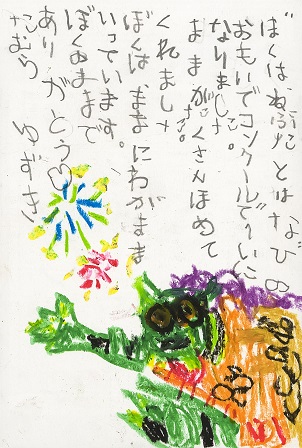 ぼくは、ねぶたとはなびの
おもいでコンクールで1いに
なりました。
ままがたくさんほめて
くれました。
ぼくは、ままにわがまま
いっています。
ぼくのままで
ありがとう。
たむら ゆずき